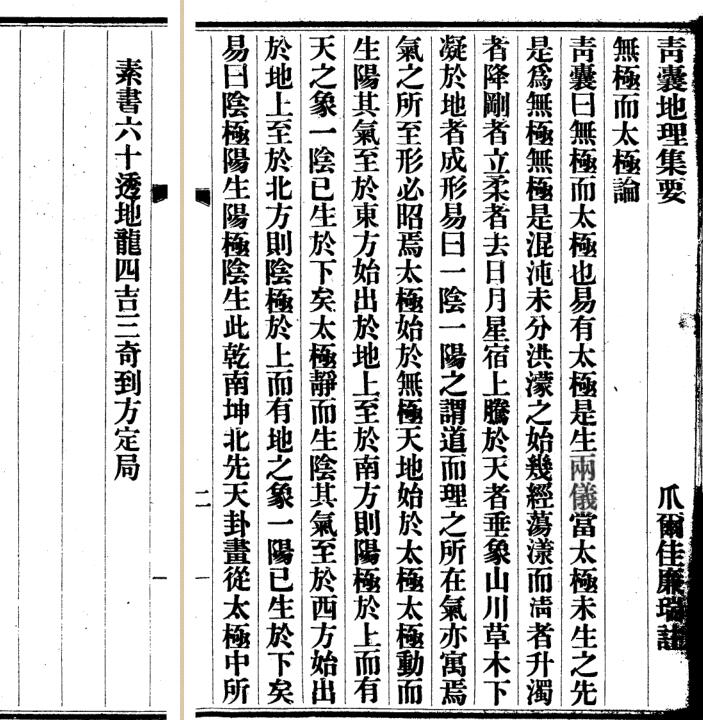 青囊地理集要
爪爾佳廉瑞註
無極而太極論
青囊曰無極而太極也易有太極是生兩儀當太極未生之先
是爲無極無極是混沌未分洪濛之始幾經蕩漾而淸者升濁
者降剛者立柔者去日月星宿上騰於天者垂象山川草木下
凝於地者成形易曰一陰一陽之謂道而理之所在氣亦寓焉
氣之所至形必昭焉太極始於無極天地始於太極太極動而
生陽其氣至於東方始出於地上至於南方則陽極於上而有
天之象一陰已生於下矣太極靜而生陰其氣至於西方始出
於地上至於北方則陰極於上而有地之象一陽已生於下矣
易曰陰極陽生陽極陰生此乾南坤北先天卦畫從太極中所
二
一
一
素書六十透地龍四吉三奇到方定局